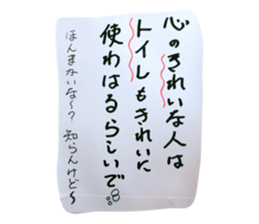 心のきれいな人は
トイレもきれいに
使わはるらしいで!!
ほんまかいな〜?知らんけど〜